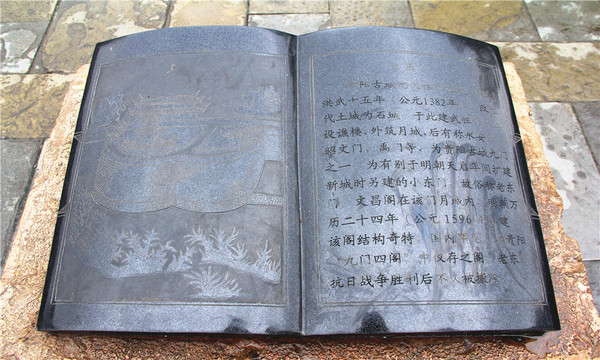 阵古城
洪武十五年（公元1382年
代土城为石城 于此建武胜
设谯楼、外筑月城、后有称永安
昭文门、禹门等，为贵阳古城九门
之一 为有别于明朝天启年间扩建
新城时另建的小东门 故俗称老东
门 文昌阁在该门月城内 明朝万
历二十四年（公元1596 建
该阁结构奇特 国内 贵阳
“九门四阁”中仅存之阁 老东
抗日战争胜利后不久被